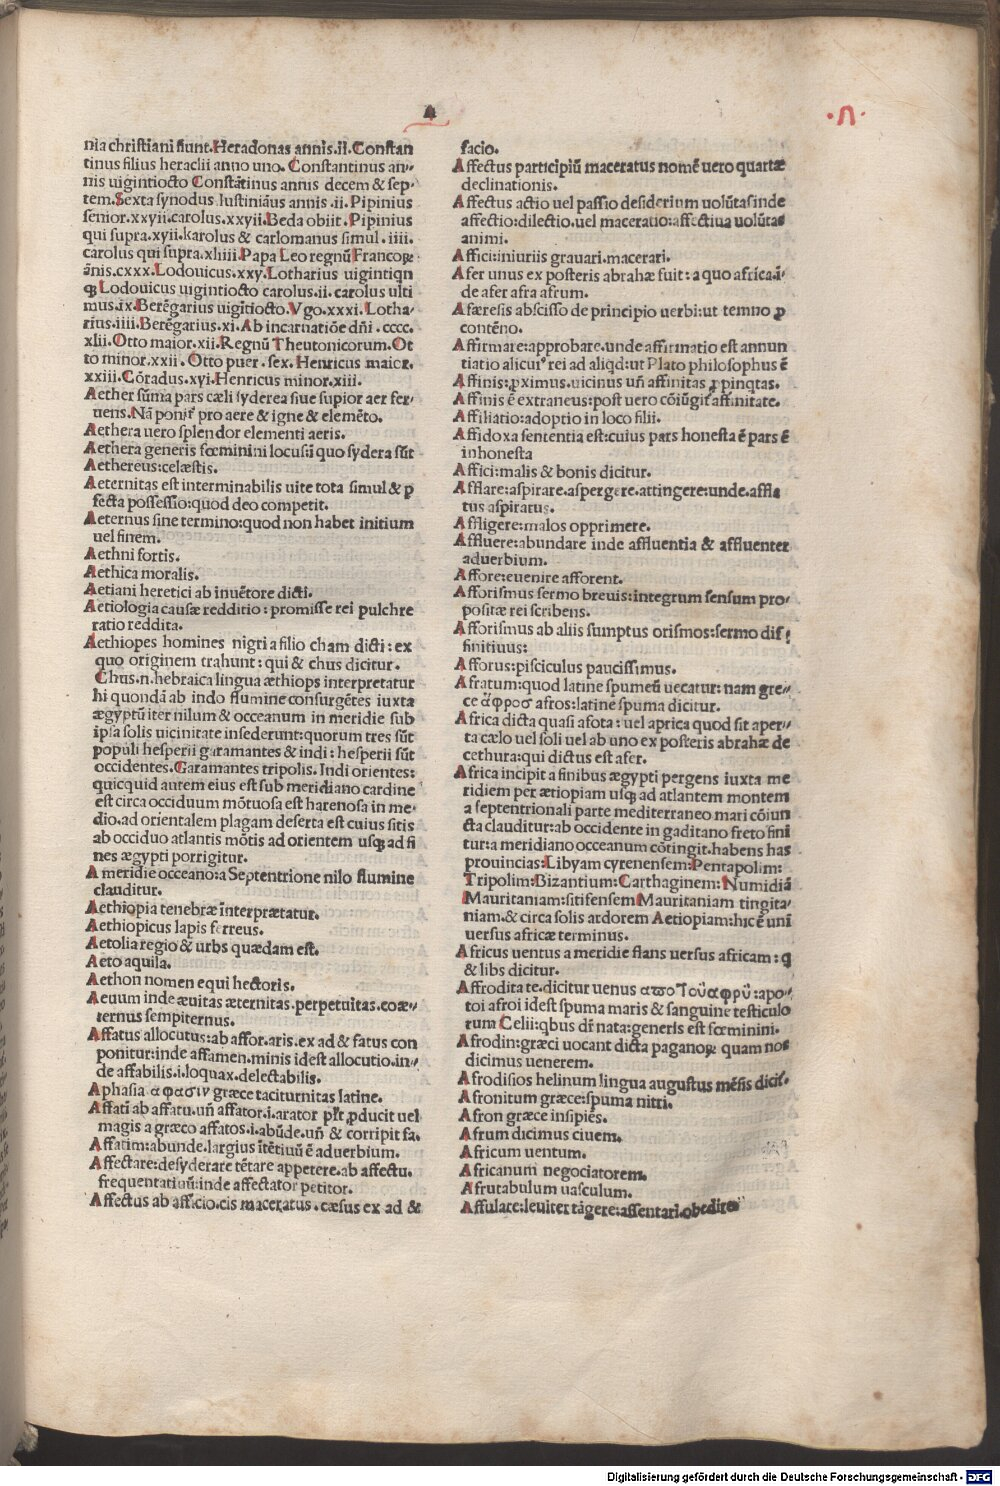 A
·A·
nia christiani fiunt. Heradonas annis.ii. Constan
tinus filius heraclii anno uno. Constantinus an⸗
nis uigintiocto Constãtinus annis decem & sep⸗
tem. Sexta synodus Iustiniãus annis .ii. Pipinius
senior.xxyii.carolus.xxyii. Beda obiit. Pipinius
qui supra.xyii.karolus & carlomanus simul.iiii.
carolus qui supra.xliiii. Papa Leo regnũ Francoꝝ
ãnis.cxxx. Lodouicus.xxy. Lotharius uigintiqn
ꝗ Lodouicus uigintiocto carolus.ii. carolus ulti
mus.ix. Berẽgarius uigĩtiocto. Vgo.xxxi. Lotha⸗
rius.iiii. Berẽgarius.xi. Ab incarnatiõe dñi .cccc.
xlii. Otto maior.xii. Regnũ Theutonicorum. Ot
to minor.xxii. Otto puer.sex. Henricus maior.
xxiii. Cõradus.xyi. Henricus minor.xiii.
Aether sũma pars cæli syderea siue supior aer fer⸗
uens. Nã ponit̃ pro aere & igne & elemẽto.
Aethera uero splendor elementi aeris.
Aethera generis fœminini locusũ quo sydera sũt
Aethereus:celæstis.
Aeternitas est interminabilis uite tota simul & ꝑ
fecta possessio:quod deo competit.
Aeternus sine termino:quod non habet initium
uel finem.
Aethni fortis.
Aethica moralis.
Aetiani heretici ab inuẽtore dicti.
Aetiologia causæ redditio: promisse rei pulchre
ratio reddita.
Aethiopes homines nigri a filio cham dicti: ex
quo originem trahunt: qui & chus dicitur.
Chus.n.hebraica lingua æthiops interpretatur
hi quondã ab indo flumine consurgẽtes iuxta
ægyptũ iter nilum & occeanum in meridie sub
ipsa solis uicinitate insederunt:quorum tres sũt
populi hesperii garamantes & indi: hesperii sũt
occidentes. Garamantes tripolis. Indi orientes:
quicquid autem eius est sub meridiano cardine
est circa occiduum mõtuosa est harenosa in me⸗
dio.ad orientalem plagam deserta est cuius sitis
ab occiduo atlantis mõtis ad orientem usqꝫ ad fi
nes ægypti porrigitur.
A meridie occeano:a Septentrione nilo flumine
clauditur.
Aethiopia tenebræ ĩnterprætatur.
Aethiopicus lapis ferreus.
Aetolia regio & urbs quædam est.
Aeto aquila.
Aethon nomen equi hectoris.
Aeuum inde æuitas æternitas.perpetuitas.coæ⸗
ternus sempiternus.
Affatus allocutus:ab affor.aris.ex ad & fatus con
ponitur:inde affamen.minis idest allocutio.in⸗
de affabilis.i.loquax.delectabilis.
Aphasia αφασιν græce taciturnitas latine.
Affati ab affatu.uñ affator.i.arator pł̃r ꝓducit uel
magis a græco affatos.i.abũde.uñ & corripit fa.
Affatim:abunde.largius ĩtẽtiuũ ẽ aduerbium.
Affectare:desyderare tẽtare appetere.ab affectu.
frequentatiuũ:inde affectator petitor.
Affectus ab afficio.cis maceratus.cæsus ex ad &
facio.
Affectus participiũ maceratus nomẽ uero quartæ
declinationis.
Affectus actio uel passio desiderium uolũtas inde
affectio:dilectio.uel maceratio:affectiua uolũtas
animi.
Affici:iniuriis grauari.macerari.
Afer unus ex posteris abrahæ fuit: a quo africa.i⸗
de afer afra afrum.
Afæresis abscisso de principio uerbi:ut temno ꝓ
contẽno.
Affirmare:approbare.unde affirmatio est annun
tiatio alicuiꝰ rei ad aliqd:ut Plato philosophus ẽ
Affinis:ꝓximus.uicinus uñ affinitas ꝓpinqtas.
Affinis ẽ extraneus:post uero cõiũgit̃ affinitate.
Affiliatio:adoptio in loco filii.
Affidoxa sententia est:cuius pars honesta ẽ pars ẽ
inhonesta
Affici:malis & bonis dicitur.
Afflare:aspirare.aspergere.attingere:unde.affla
tus aspiratus.
Affligere:malos opprimere.
Affluere:abundare inde affluentia & affluenter
aduerbium.
Affore:euenire afforent.
Afforismus sermo breuis:integrum sensum pro⸗
positæ rei scribens.
Afforismus ab aliis sumptus orismos:sermo dif⸗
finitiuus:
Afforus:pisciculus paucissimus.
Afratum:quod latine spumeũ uecatur: nam gre⸗
ce ἀφροσ afros:latine spuma dicitur.
Africa dicta quasi afota: uel aprica quod sit aper⸗
ta cælo uel soli uel ab uno ex posteris abrahæ de
cethura:qui dictus est afer.
Africa incipit a finibus ægypti pergens iuxta me
ridiem per ætiopiam usqꝫ ad atlantem montem
a septentrionali parte mediterraneo mari cõiun
cta clauditur:ab occidente in gaditano freto fini
tur:a meridiano occeanum cõtingit.habens has
prouincias:Libyam cyrenensem:Pentapolim:
Tripolim:Bizantium:Carthaginem:Numidiã
Mauritaniam:sitifensem Mauritaniam tingita⸗
niam.& circa solis ardorem Aetiopiam:hic ẽ uni
uersus africæ terminus.
Africus uentus a meridie flans uersus africam: ꝗ
& libs dicitur.
Affrodita te.dicitur uenus αποτοῦαφρῦ:apo⸗
toi afroi idest spuma maris & sanguine testiculo
rum Celii:qbus dr̃ nata:generis est fœminini.
Afrodin:græci uocant dicta paganoꝝ quam nos
dicimus uenerem.
Afrodisios helinum lingua augustus mẽsis dicit̃.
Afronitum græce:spuma nitri.
Afron græce insipiẽs.
Afrum dicimus ciuem.
Africum uentum.
Africanum negociatorem.
Afrutabulum uasculum.
Affulare:leuiter tãgere:assentari.obedire
Digitalisierung gefördert durch die Deutsche Forschungsgemeinschaft - DFG